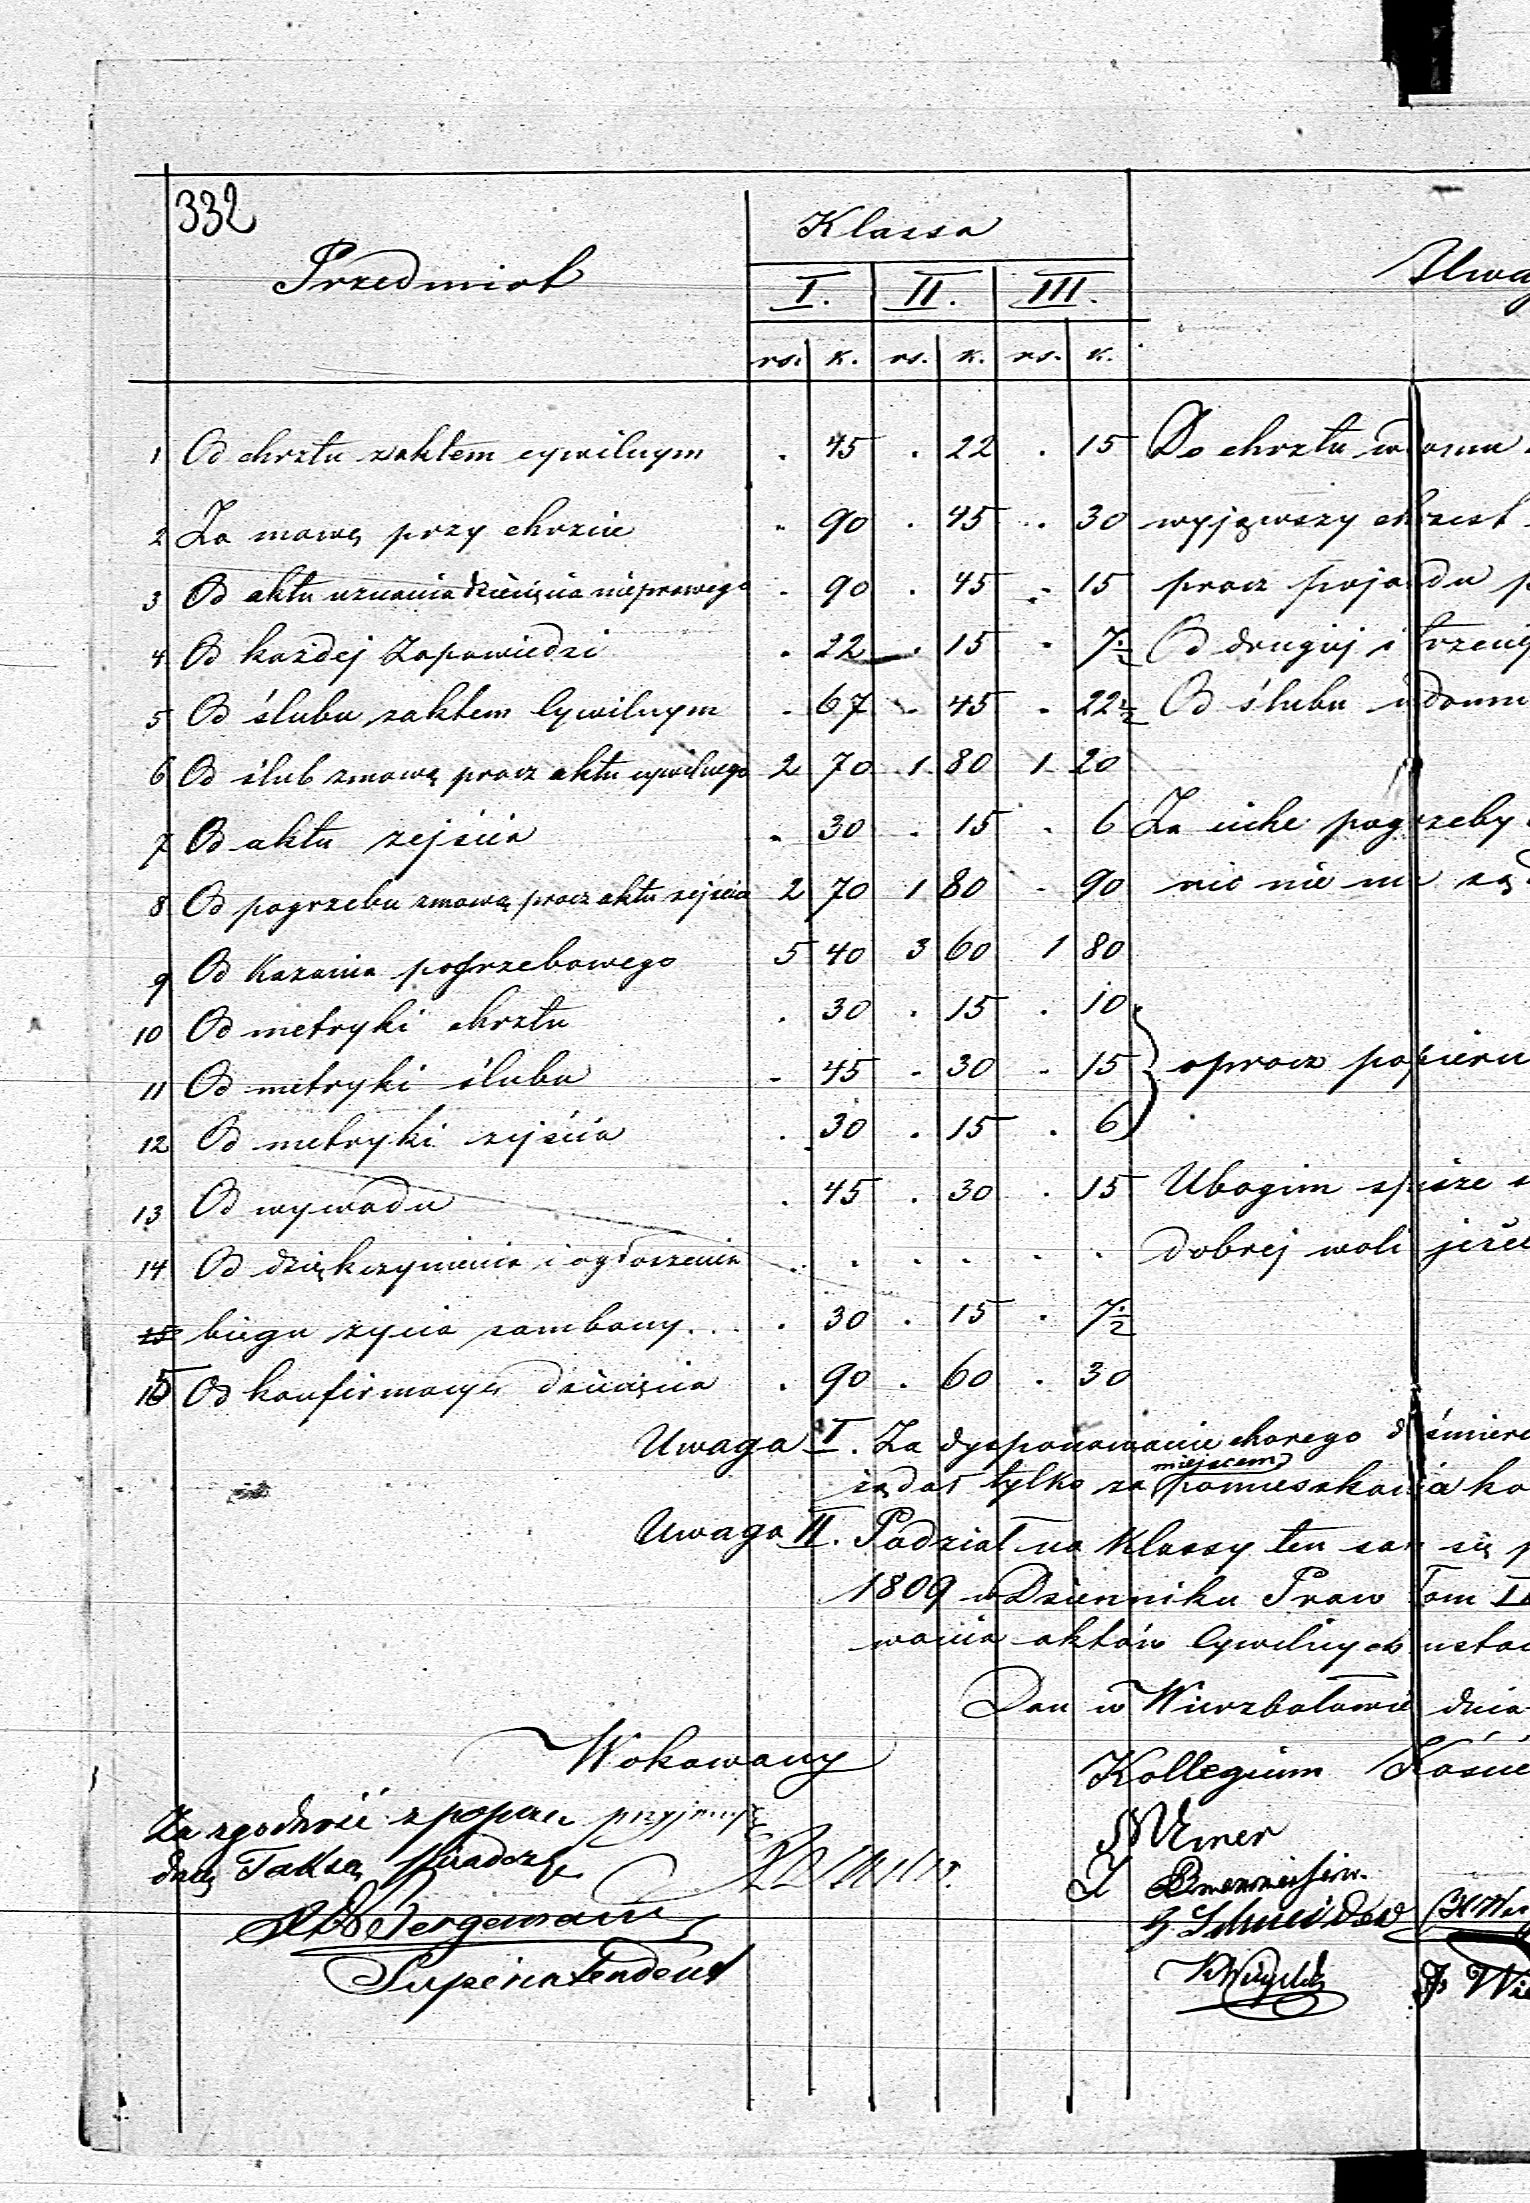 332
Przedmiot Klassa Uwag
I. II. III.
rs. k. rs. k. rs. k.
1 Od chrztu z aktem cywilnym . 45 . 22 . 15 Do chrztu w domu
2 Za mowę przy chrzcie . 90 . 45 . 30 wyjąwszy chrzest
3 Od aktu uznania dziecięcia nieprawego . 90 . 45 . 15 procz pojazdu p
4 Od każdej Zapowiedzi . 22 . 15 . 7½ Od drugiej i trzeciej
5 Od ślubu z aktem Cywilnym . 67 . 45 . 22½ Od ślubu w domu
6 Od ślub z mową procz aktu cywilnego 2 70 1 80 1 20
7 Od aktu zejścia . 30 . 15 . 6 Za ciche pogrzeby
8 Od pogrzebu z mową procz aktu zejścia 2 70 1 80 . 90 nic nie ma żąd
9 Od Kazania pogrzebowego 5 40 3 60 1 80
10 Od metryki chrztu . 30 . 15 . 10
11 Od metryki ślubu . 45 . 30 . 15 oprocz papieru
12 Od metryki zejścia . 30 . 15 . 6
13 Od wywodu . 45 . 30 . 15 Ubogim spisze
14 Od dziękczynienia i ogłoszenia . . . . . . dobrej woli jeże
15 biegu życia z ambony . . . . 30 . 15 . 7½
15 Od konfirmacyi dziecięcia . 90 . 60 . 30
Uwaga I. Za dysponowanie chorego d śmierc
miejscem
żądać tylko za pomieszkania ko
Uwaga II. Podział na Klassy ten sam się p
1809 w Dzienniku Praw Tom I
wania aktów Cywilnych ustan
Dan w Wierzbołowie dnia
Wokowany Kollegium Koście
Za zgodność z przyjmuj
dną Taksą świadczę
Bergemann
Superintendent
G. Schneider